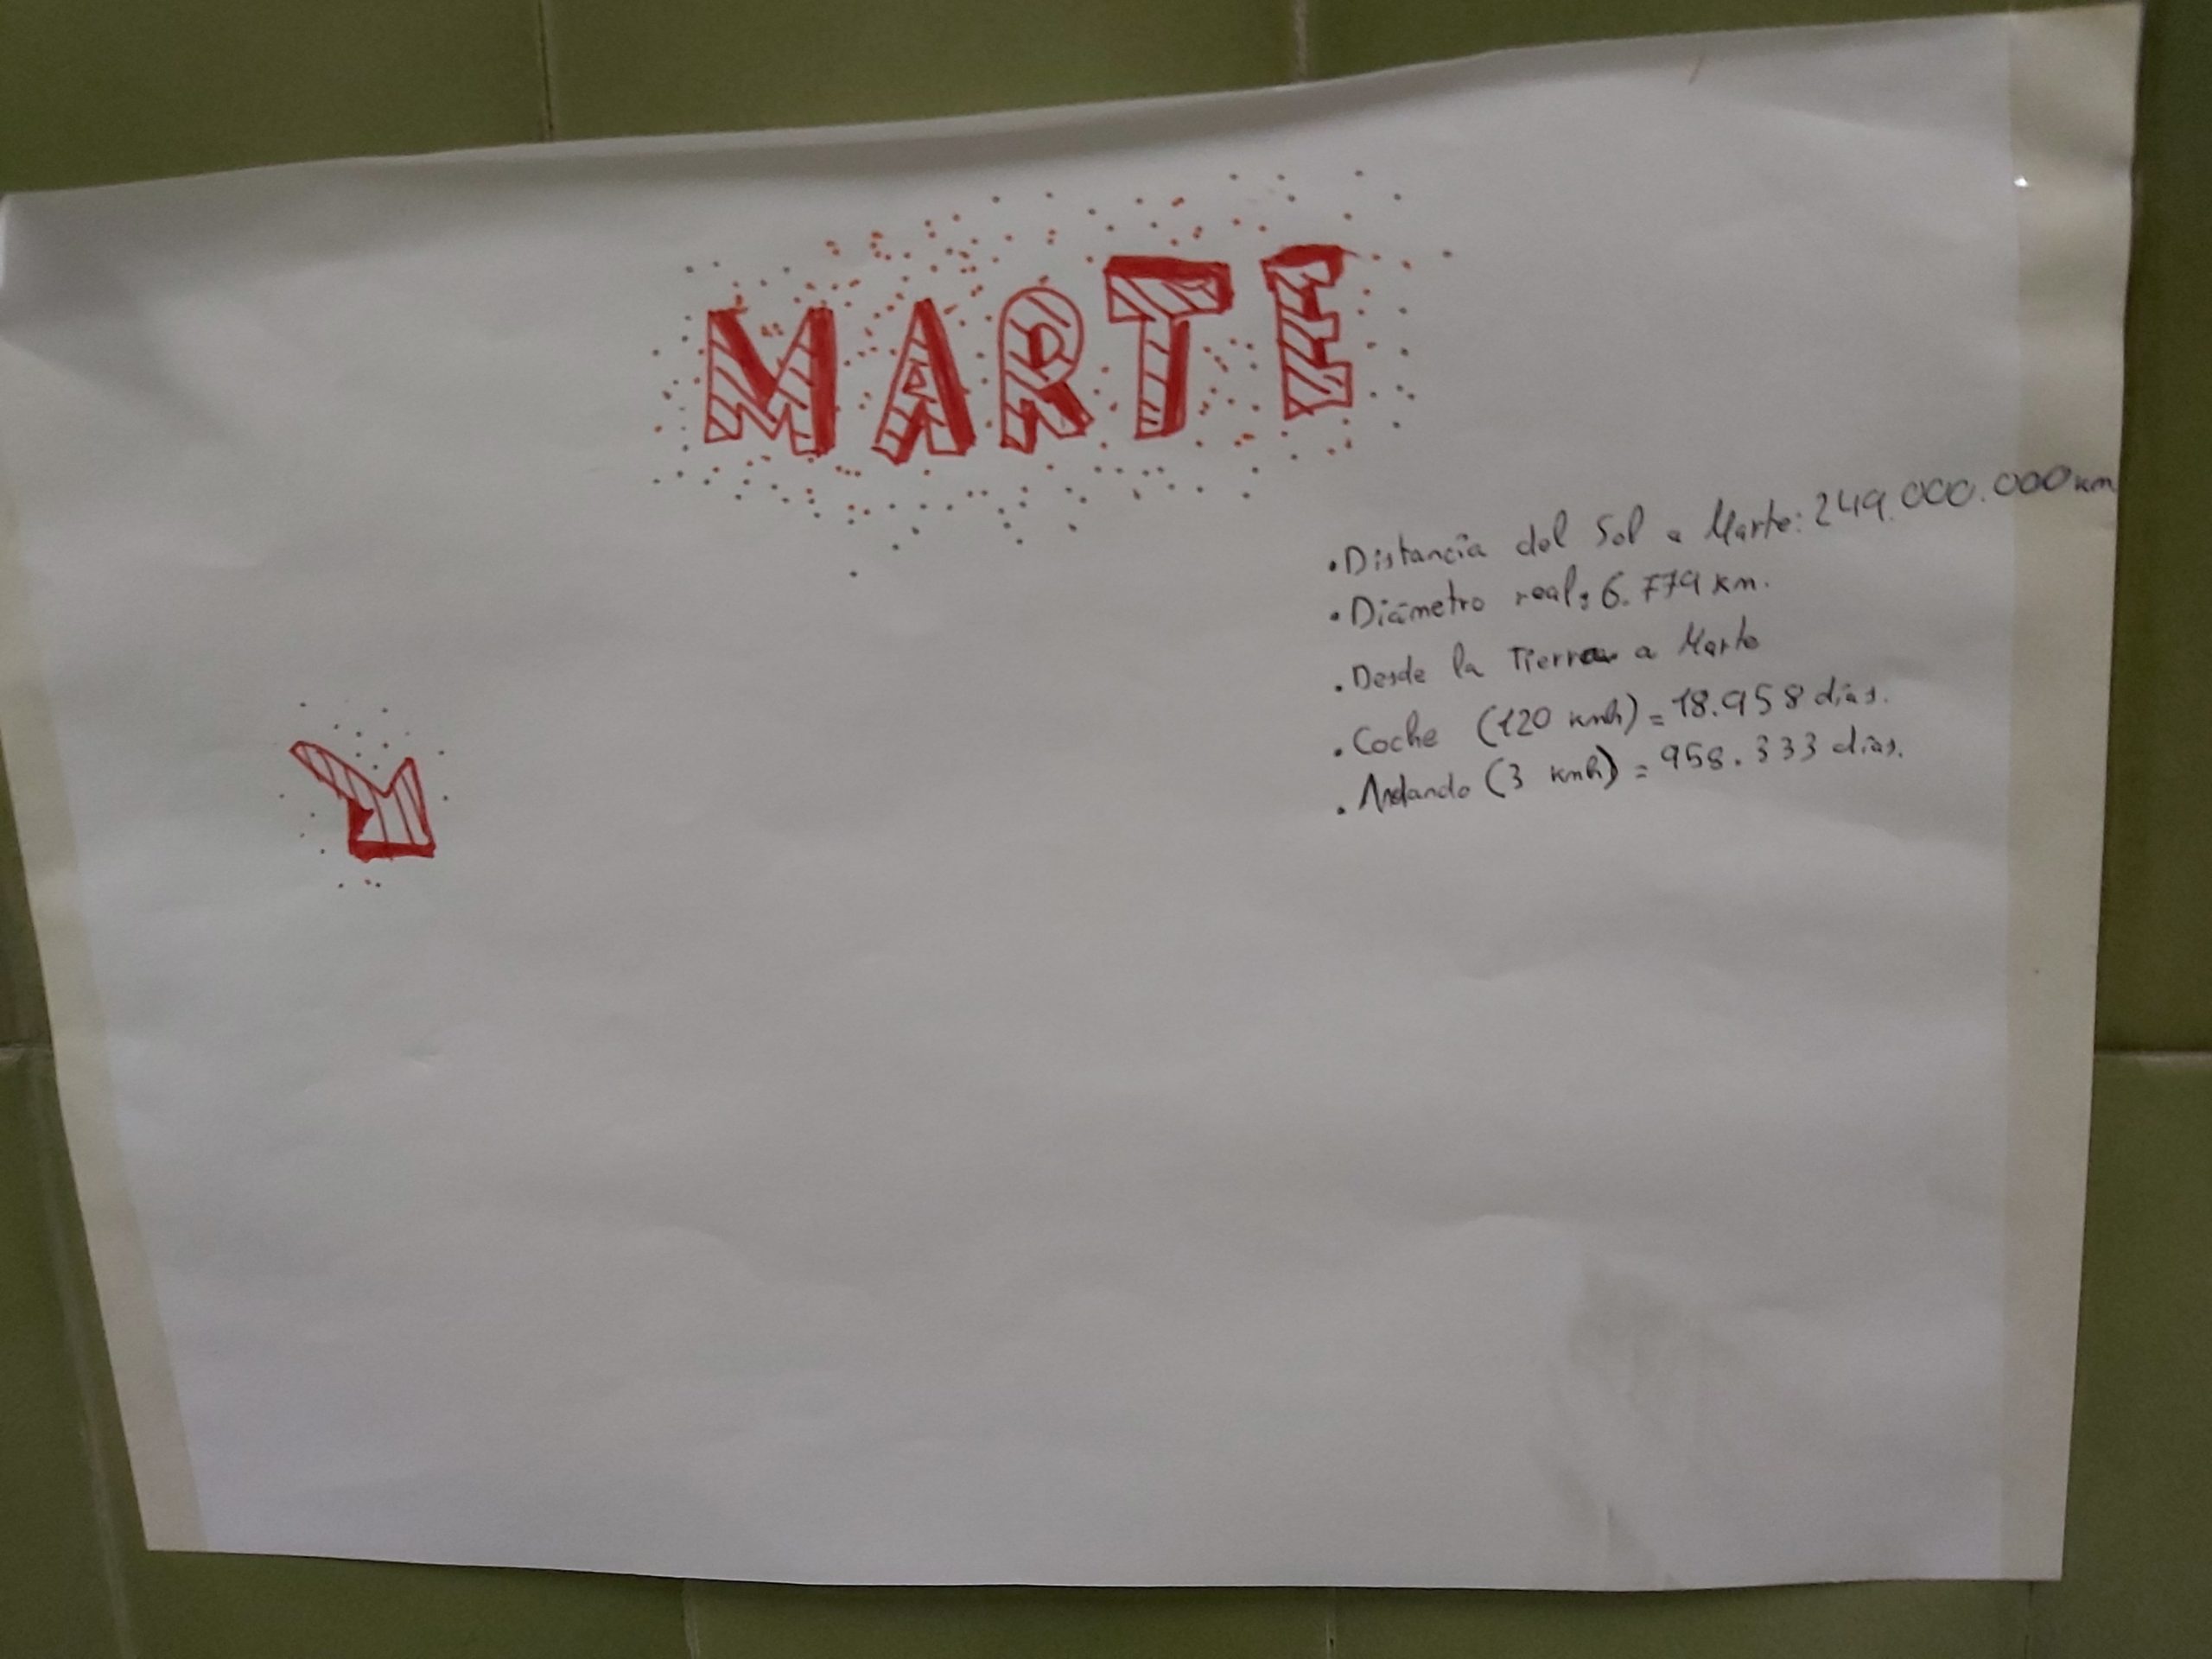 MARTE
• Distancia del Sol a Marte: 249.000.000 km
• Diámetro real: 6.779 km.
• Desde la Tierra a Marte
• Coche (120 kmh) = 18.958 días.
• Andando (3 kmh) = 958.333 días.